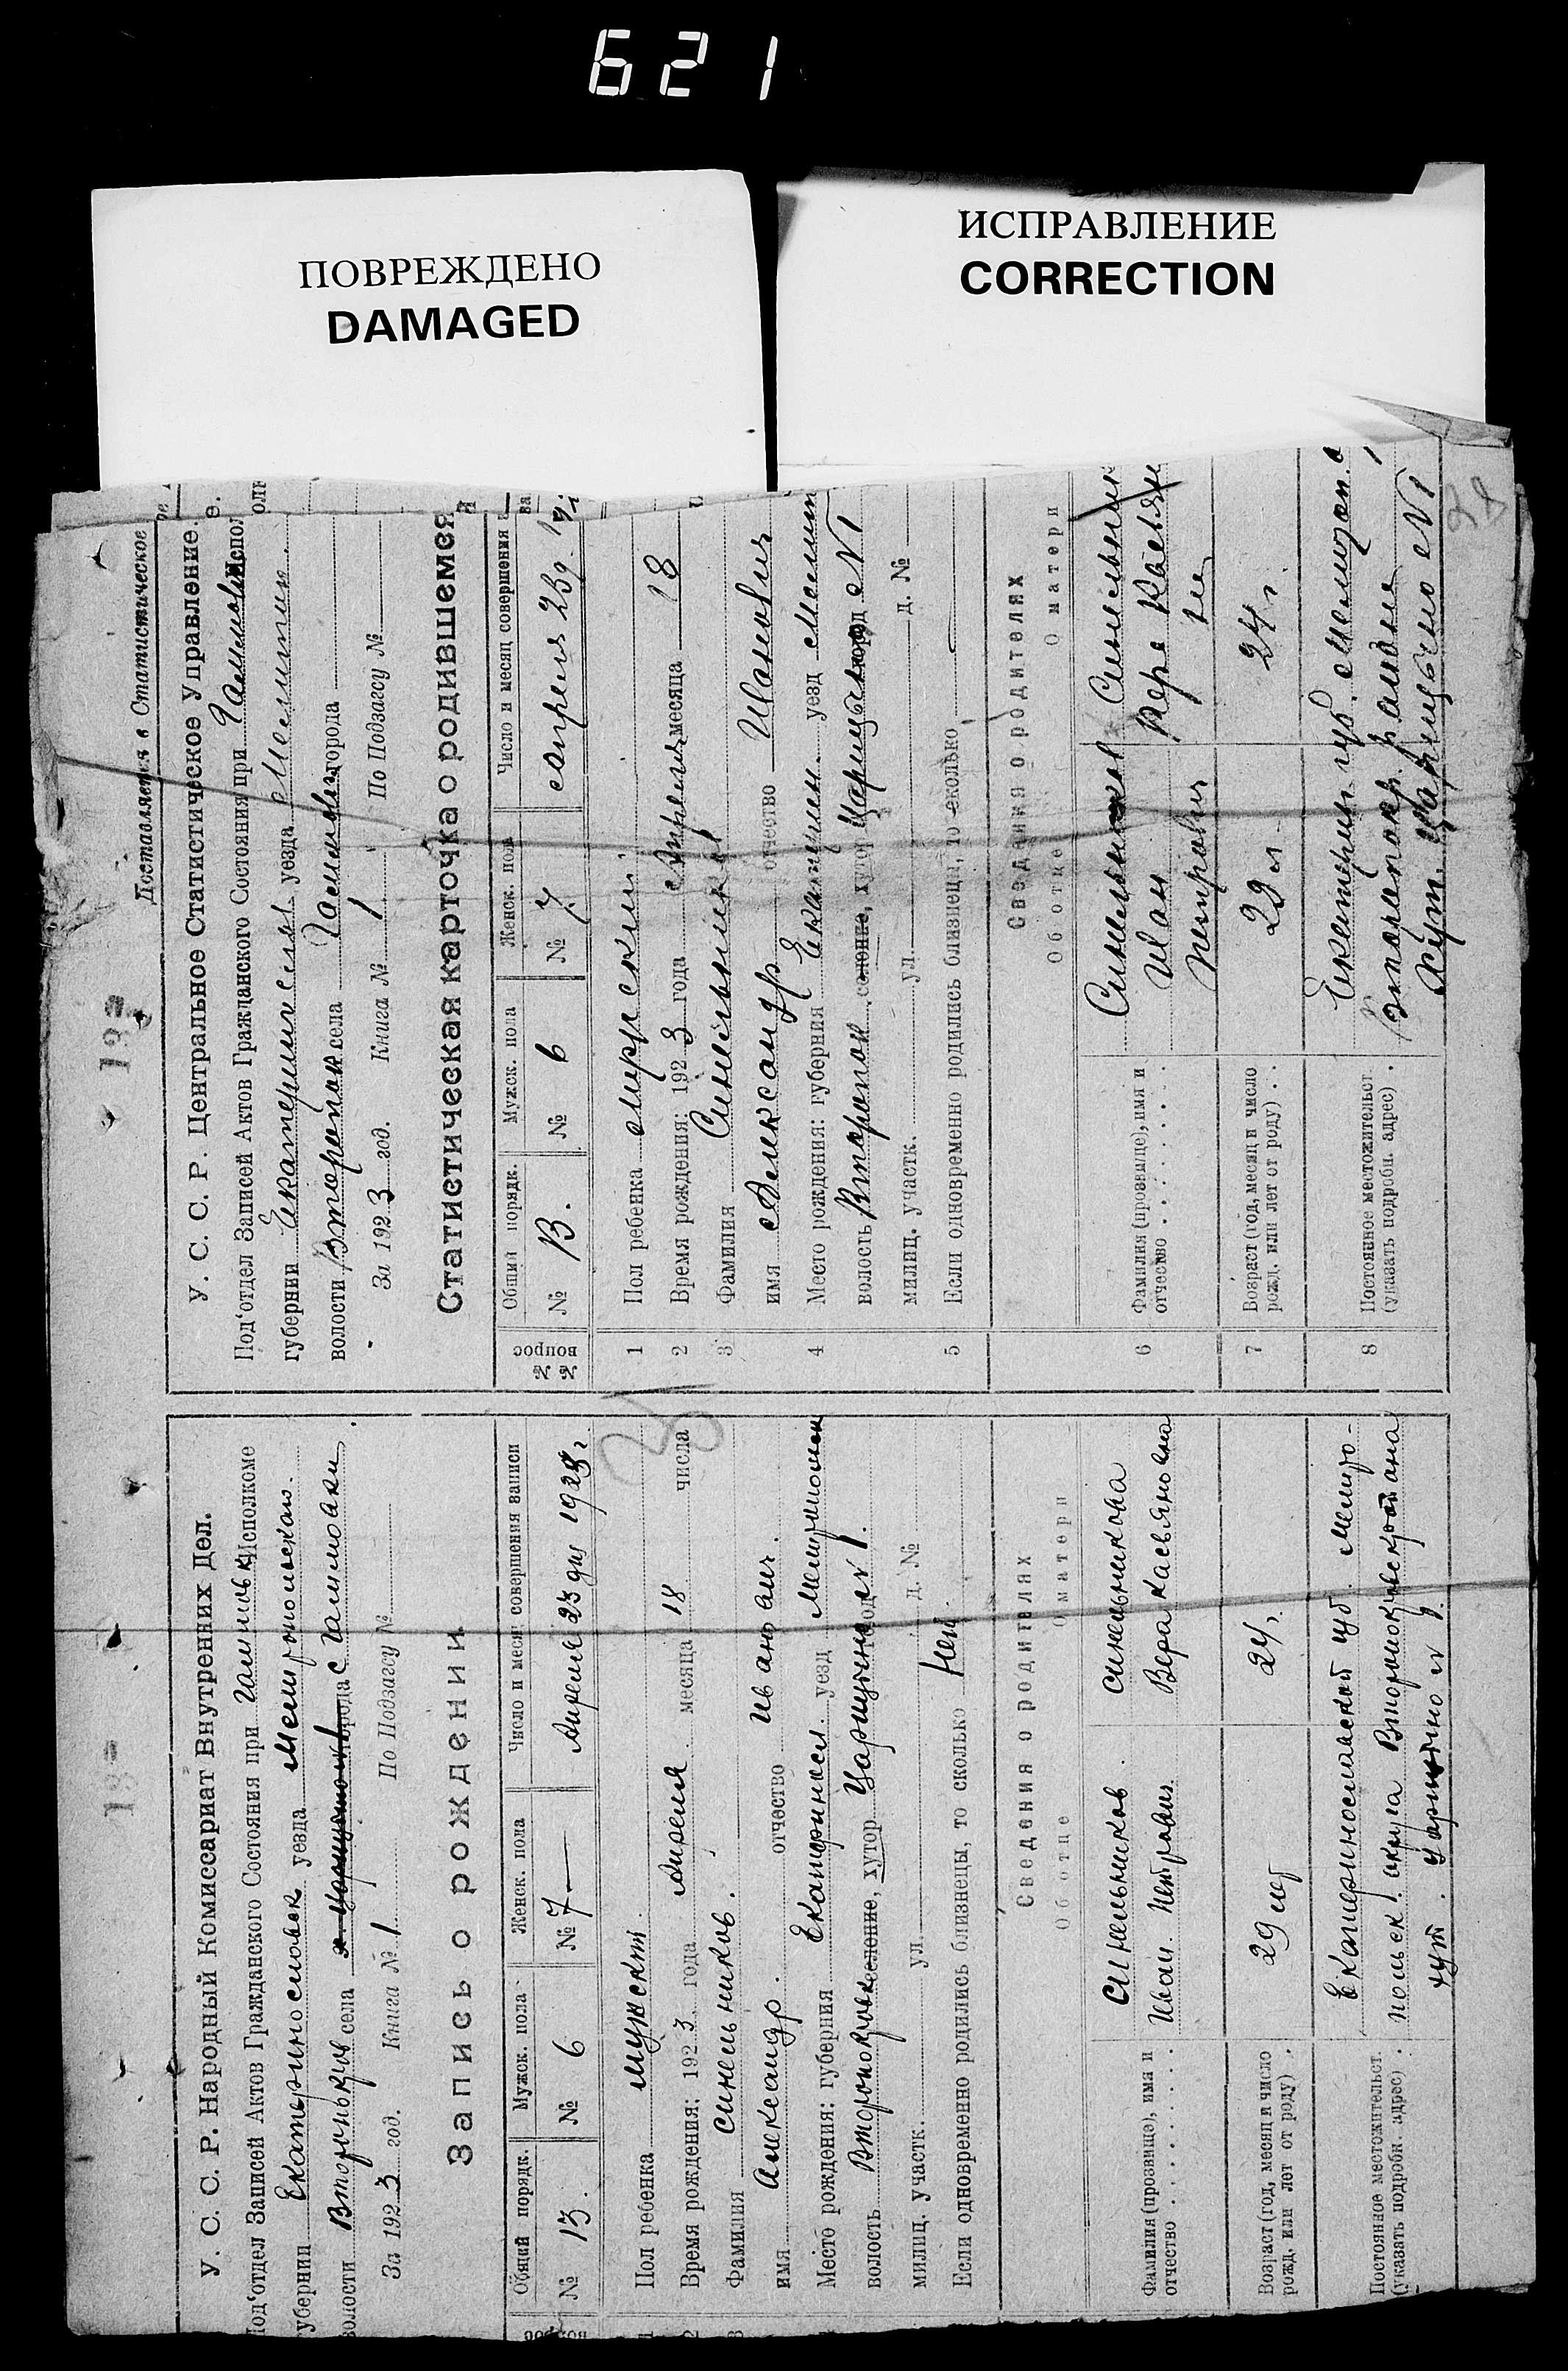 621
ПОВРЕЖДЕНО
DAMAGED
ИСПРАВЛЕНИЕ
CORRECTION
У. С. С. Р. Народный Комиссариат Внутренних Дел.
Под'отдел Записей Актов Гражданского Состояния при Исполкоме
губернии уезда
волости села города с Гамовки.
За 1923 год. Книга № 1 По Подзагсу №
Запись о рождении
Общий порядк. Мужск. пола Женск. пола Число и месяц совершения записи
№ 13. № 6 № 7 — Апреля 23 дня 1923 г.
Пол ребенка мужской.
Время рождения: 1923 года Апреля месяца 18 числа
Фамилия Синельников.
имя Александр. отчество Иванович.
Место рождения: губерния Екатериносл. уезд
волость селение, хутор Царицыно № 1.
милиц. участк. ул. д. №
Если одновременно родились близнецы, то сколько Нет.
Сведения о родителях
Об отце О матери
Фамилия (прозвище), имя и отчество Синельников Иван Петрович Синельникова Вера Касьяновна
Возраст (год, месяц и число рожд. или лет от роду) 29 лет 24.
Постоянное местожительст. (указать подробн. адрес) Екатеринославской губ.
округа
хут. Царицыно № 1.
Доставляется в Статистическое
У. С. С. Р. Центральное Статистическое Управление.
Под'отдел Записей Актов Гражданского Состояния при Испол
губернии Екатеринослав. уезда
волости села города
За 1923 год. Книга № 1 По Подзагсу №
Статистическая карточка о родившемся
№№ вопрос Общий порядк. Мужск. пола Женск. пола Число и месяц совершения
№ 13. № 6 № 7. апреля 23 д.
1 Пол ребенка мужской
2 Время рождения: 1923 года Апреля месяца 18
3 Фамилия Синельников
имя Александр отчество Иванович
4 Место рождения: губерния уезд
волость селение, хутор город № 1
милиц. участк. ул. д. №
5 Если одновременно родились близнецы, то сколько
Сведения о родителях
Об отце О матери
6 Фамилия (прозвище), имя и отчество Синельников Иван Петрович
7 Возраст (год, месяц и число рожд. или лет от роду) 29 л 24 г.
8 Постоянное местожительст. (указать подробн. адрес) Екатерин. губ.
Хут. Царицыно № 1
28